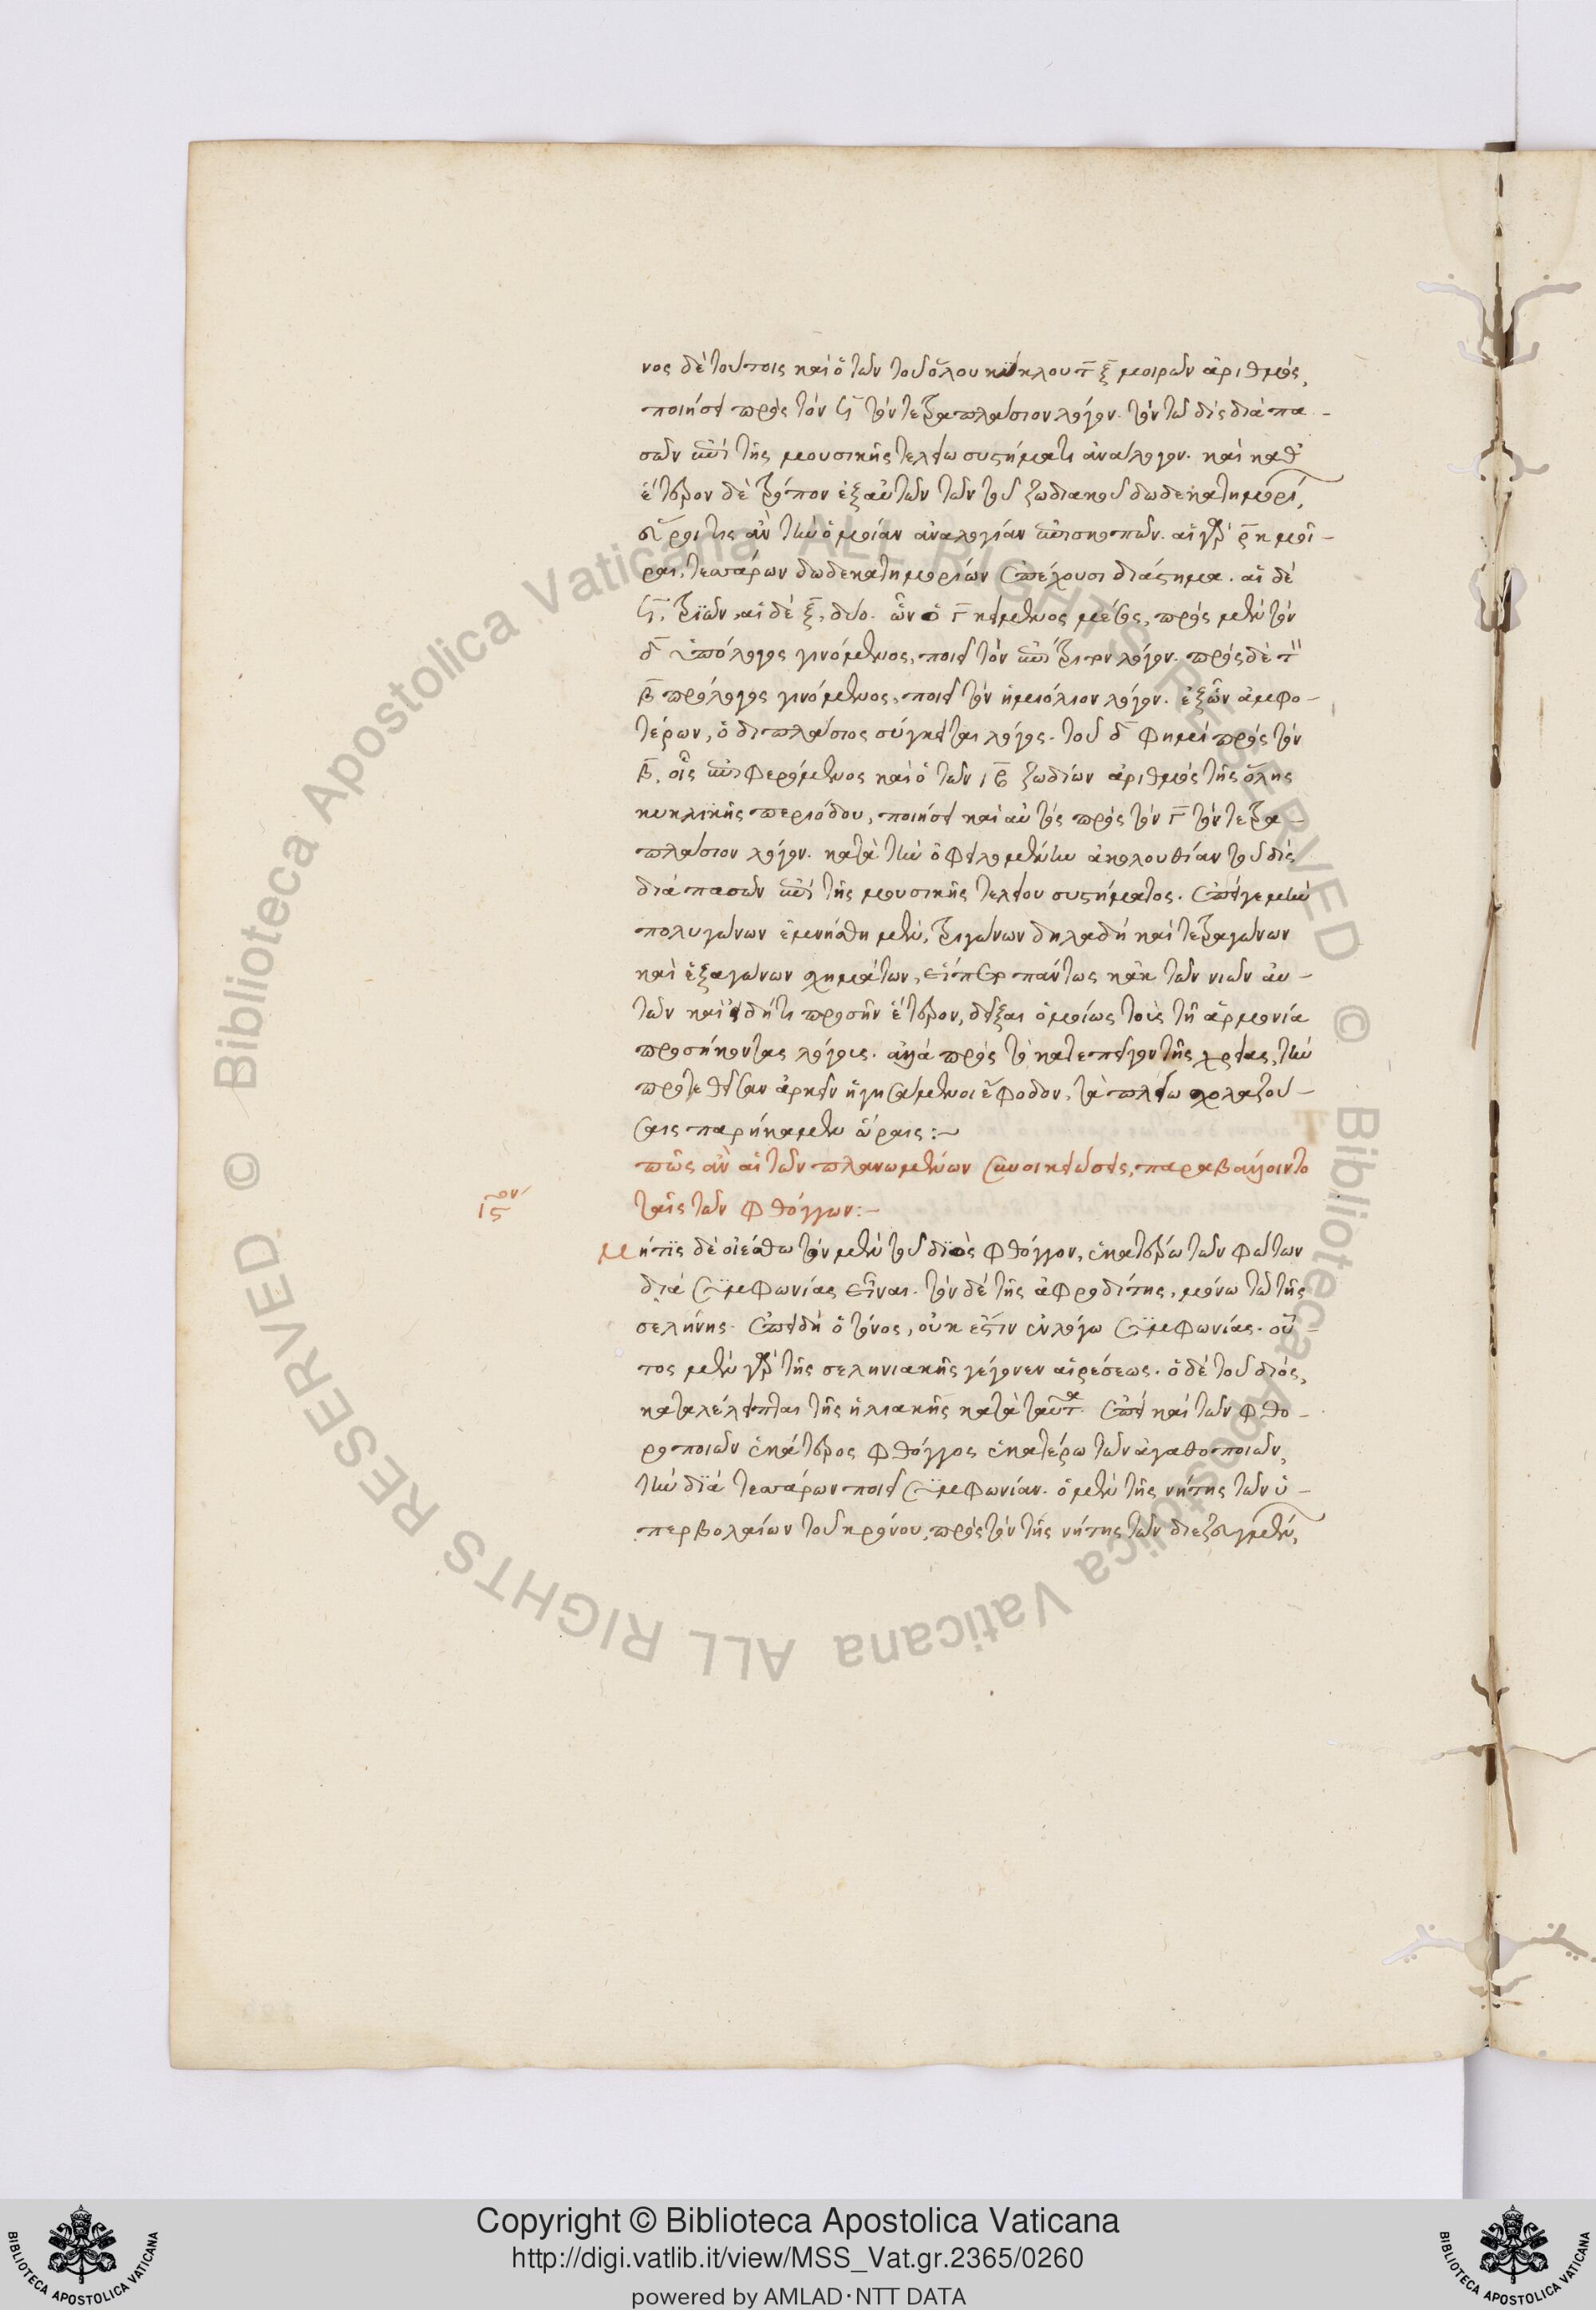 νος δὲ τούτοις καὶ ὁ τῶν τοῦ ὅλου κύκλου τ̅ξ̅ μοιρῶν ἀριθμός,
ποιήσει πρὸς τὸν ϟ̅ τὸν τετραπλάσιον λόγον. τὸν τῶ δὶς διὰ πα-
σῶν ἐπὶ τῆς μουσικῆς τελείω συστήματι ἀνάλογον. καὶ καθ'
ἕτερον δὲ τρόπον ἐξ αὐτῶν τῶν τοῦ ζωδιακοῦ δωδεκατημορί,
εὕροι τις ἂν τὴν ὁμοίαν ἀναλογίαν ἐπισκοπῶν. αἱ γὰρ ρ̅κ̅ μοῖ-
ραι, τεσσάρων δωδεκατημορίων ἐπέχουσι διάστημα. αἱ δὲ
ϟ̅, τριῶν, αἱ δὲ ξ̅, δύο. ὧν ὁ γ̅ κείμενος μέσος, πρὸς μὲν τὸν
δ̅ ὑπόλογος γινόμενος, ποιεῖ τὸν ἐπίτριτον λόγον. πρὸς δὲ τὸν
β̅ πρόλογος γινόμενος, ποιεῖ τὸν ἡμιόλιον λόγον. ἐξ ὧν ἀμφο-
τέρων, ὁ διπλάσιος σύγκειται λόγος. τοῦ δ̅ φημὶ πρὸς τὸν
β̅. οἷς ἐπιφερόμενος καὶ ὁ τῶν ιβ̅ ζωδίων ἀριθμὸς τῆς ὅλης
κυκλικῆς περιόδου, ποιήσει καὶ αὐτὸς πρὸς τὸν γ̅ τὸν τετρα-
πλάσιον λόγον. κατὰ τὴν ὀφειλομένην ἀκολουθίαν τοῦ δὶς
διὰ πασῶν ἐπὶ τῆς μουσικῆς τελείου συστήματος. ἐπεί γε μὴν
πολυγώνων ἐμνήσθημεν, τριγώνων δηλαδὴ καὶ τετραγώνων
καὶ ἑξαγώνων σχημάτων, εἴπερ πάντως κἀκ τῶν γωνιῶν αὐ-
τῶν καὶ εἰ δή τι προσῆν ἕτερον, δεῖξαι ὁμοίως τοὺς τῆ ἁρμονία
προσήκοντας λόγους. ἀλλὰ πρὸς τὸ κατεπεῖγον τῆς χρείας, τὴν
προτεθεῖσαν ἀρκεῖν ἡγησάμενοι ἔφοδον, τὰ πλείω σχολαζού-
σαις παρήκαμεν ὥραις:~
πῶς ἂν αἱ τῶν πλανωμένων συνοικειώσεις, παραβάλλοιντο
ιϛον ταῖς τῶν φθόγγων:-
Μήτις δὲ οἰέσθω τὸν μὲν τοῦ διὸς φθόγγον, ἑκατέρω τῶν φώτων
διὰ συμφωνίας εἶναι. τὸν δὲ τῆς ἀφροδίτης, μόνω τῶ τῆς
σελήνης. ἐπειδὴ ὁ τόνος, οὐκ ἔστιν ἐν λόγω συμφωνίας. οὗ-
τος μὲν γὰρ τῆς σεληνιακῆς γέγονεν αἱρέσεως. ὁ δὲ τοῦ διός,
καταλέλειπται τῆς ἡλιακῆς κατὰ ταῦτα. ἐπεὶ καὶ τῶν φθο-
ροποιῶν ἑκάτερος φθόγγος ἑκατέρω τῶν ἀγαθοποιῶν,
τὴν διὰ τεσσάρων ποιεῖ συμφωνίαν. ὁ μὲν τῆς νήτης τῶν ὑ-
περβολαίων τοῦ κρόνου, πρὸς τὸν τῆς νήτης τῶν διεζευγμέν,
Copyright © Biblioteca Apostolica Vaticana
http://digi.vatlib.it/view/MSS_Vat.gr.2365/0260
powered by AMLAD·NTT DATA
BIBLIOTECA APOSTOLICA VATICANA
BIBLIOTECA APOSTOLICA VATICANA
© Biblioteca Apostolica Vaticana ALL RIGHTS RESERVED © Biblioteca Apostolica Vaticana ALL RIGHTS RESERVED